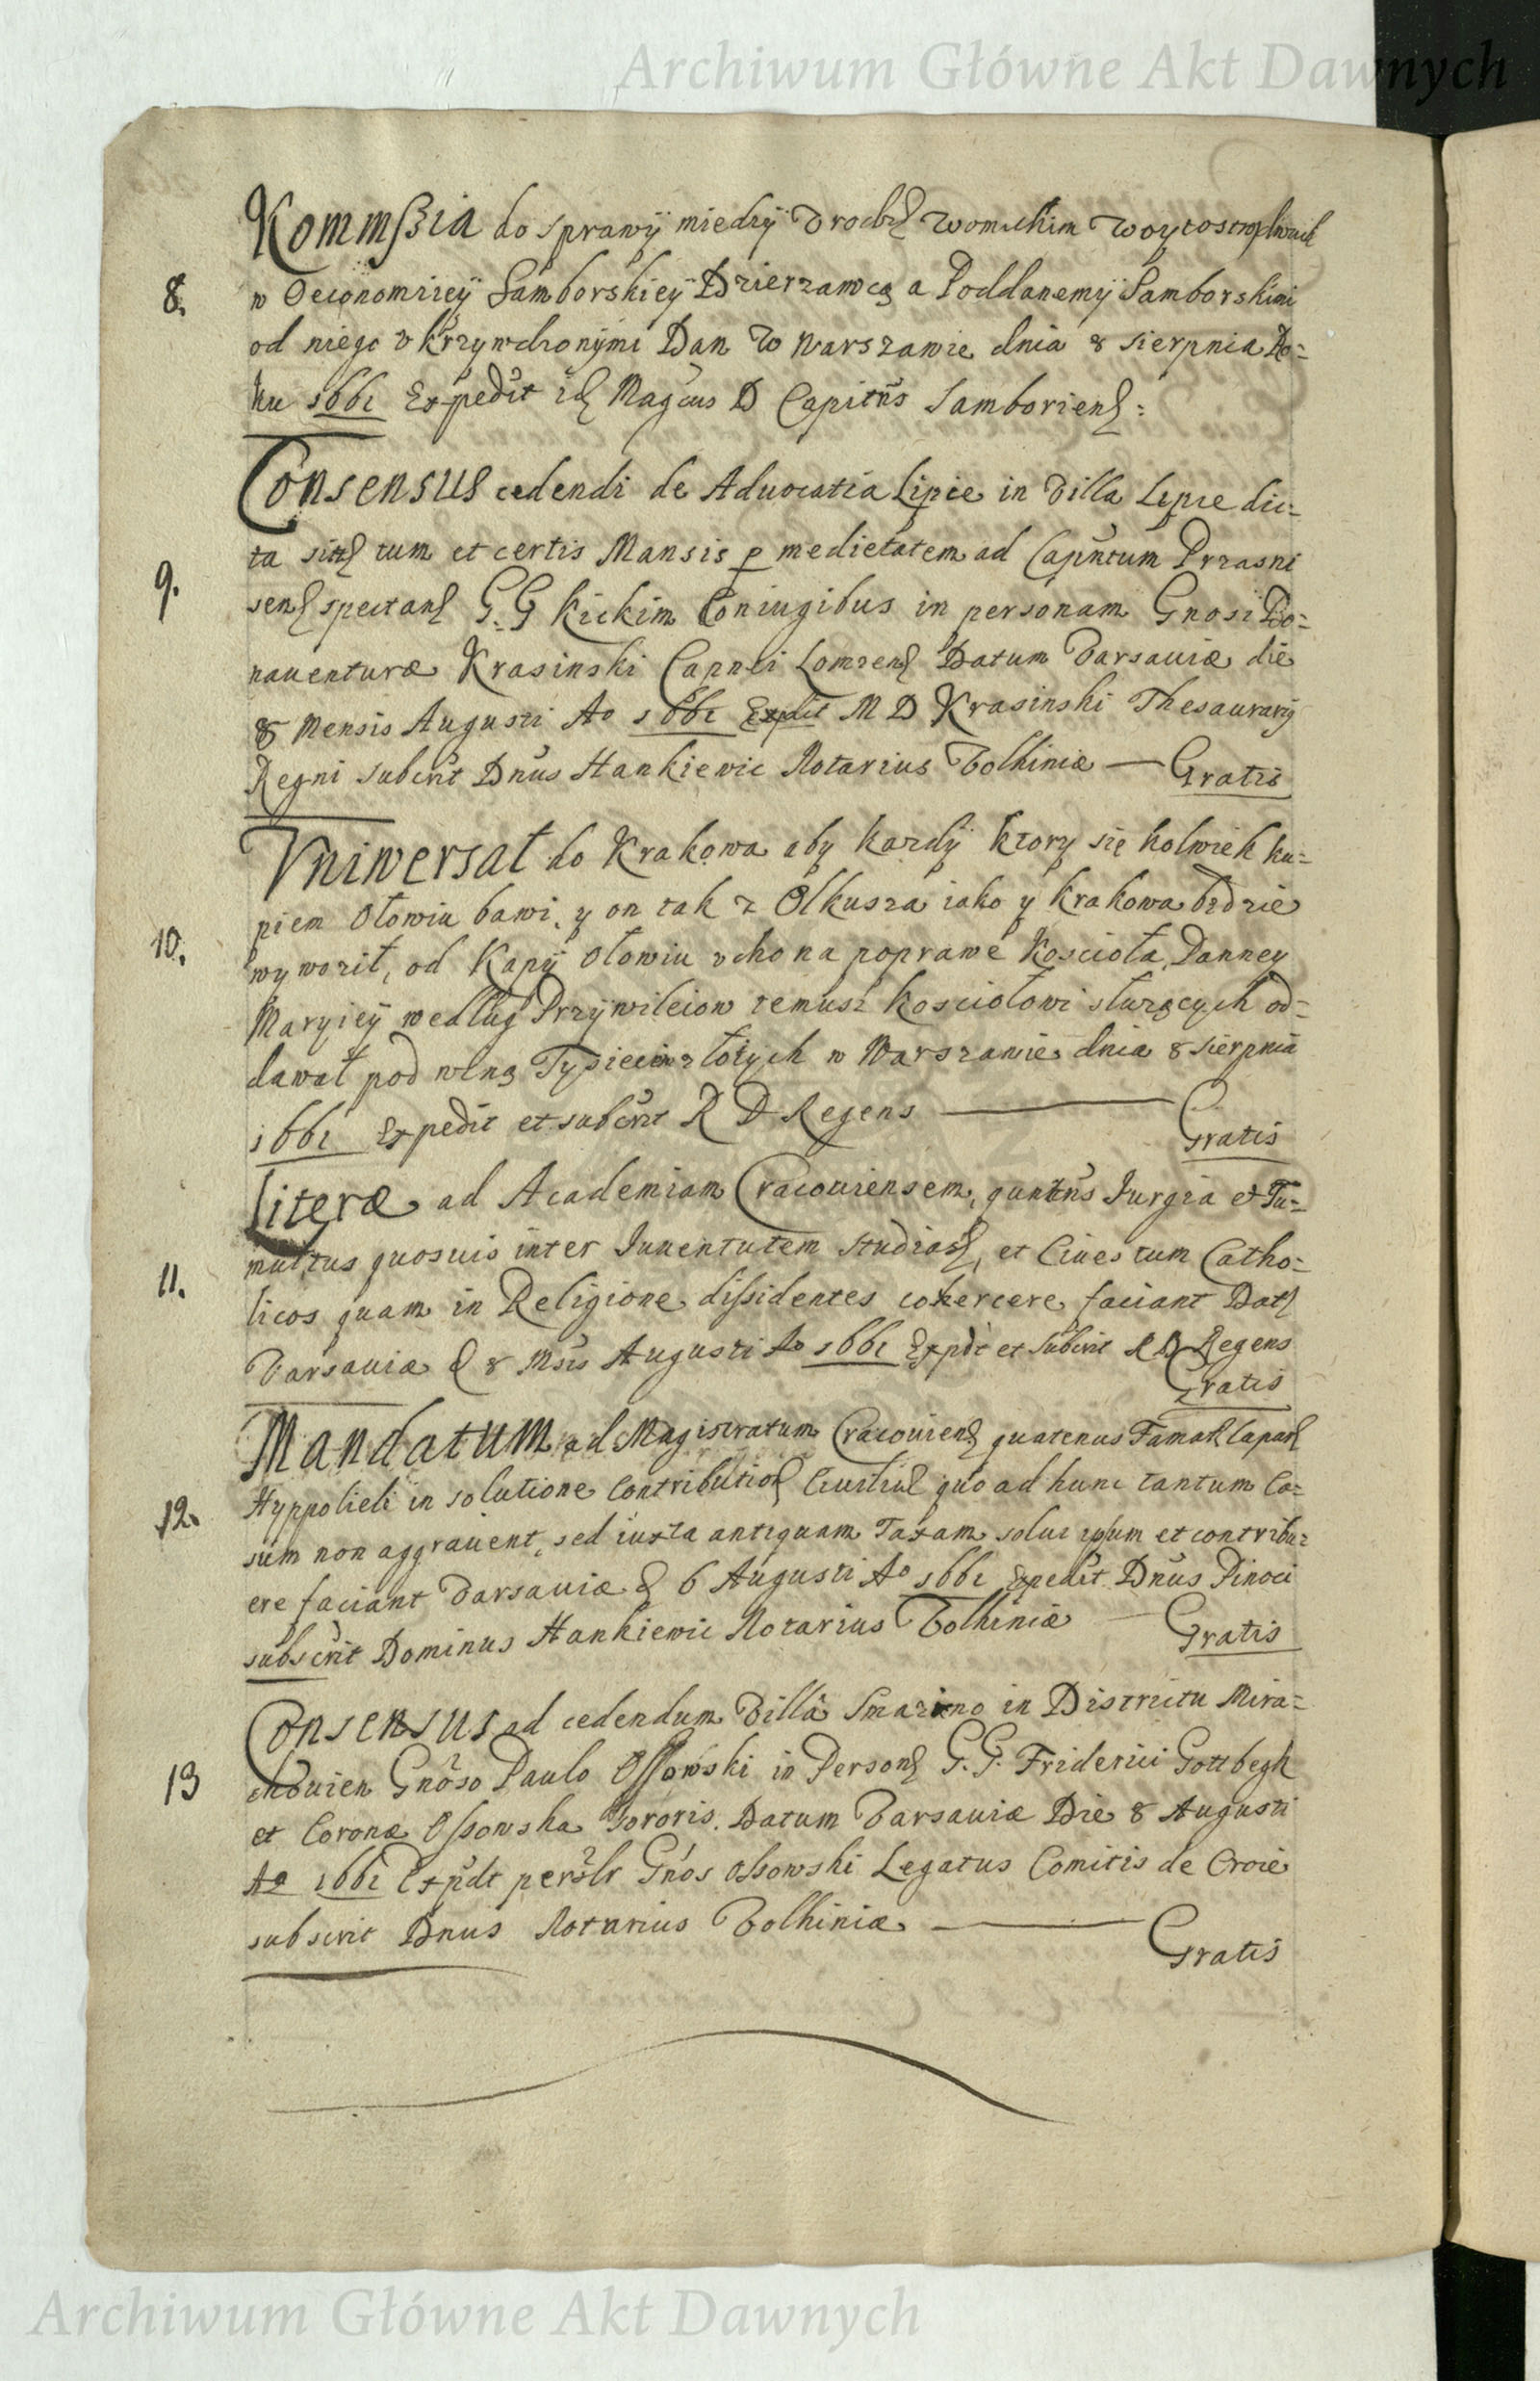 Archiwum Główne Akt Dawnych
Kommßia do sprawÿ miedzÿ Womickim
8. w Oeconomiieÿ Samborskieÿ Dzierzawcą a Poddanemÿ Samborskimi
od niego vkrzywdzonÿmi Dan w Warszawie dnia 8 Sierpnia Ro=
ku 1661 Expedit id Magcus D Capitns Samboriens:
Consensus cedendi de Aduocatia Lipie in Villa Lipie dic=
ta sitt cum et certis Mansis p medietatem ad Capntum Przasni
9. sens spectans G. G Kickim Coniugibus in personam Gnosi Bo=
nauenturæ Krasinski Capnei Lomzens Datum Varsauiæ die
8 Mensis Augusti Ao 1661 Expdit M D Krasinski Thesaurarÿ
Regni subcrit Dnus Hankiewic Notarius Volhiniæ — Gratis
Vniwersał do Krakowa aby kazdÿ ktory się kolwiek ku=
piem Ołowiu bawi, y on tak z Olkusza iako y Krakowa bedzie
10. wywoził, od Kapÿ Ołowiu na poprawe Koscioła Panney
Maryieÿ według Przÿwileiow temusz kosciołowi słuzących od=
dawał pod winą Tysiecÿ złotÿch w Warszawie dnia 8 Sierpnia
1661 Expedit et subcrit R D Regens — Gratis
Literæ ad Academiam Cracouiensem, quatnus Iurgia et Tu=
multus quosuis inter Iuuentutem studios, et Ciues tum Catho=
11. licos quam in Religione dissidentes cohercere faciant Dat
Varsauiæ d 8 Msis Augusti Ao 1661 Expdt et subcrit R D Regens
Gratis
Mandatum ad Magistratum Cracouiens quatenus Famat Capar
Hyppoliti in solutione contribution Ciuiliu quo ad hunc tantum Ca=
12. sum non aggrauent, sed iuxta antiquam Taxam solui ipsum et contribu=
ere faciant Varsauiæ d 6 Augusti Ao 1661 Expedit Dnus Pinoci
subscrit Dominus Hankiewic Notarius Volhiniæ — Gratis
Consensus ad cedendum Villa Smazino in Districtu Mira=
13 chouien Gnoso Paulo Ossowski in Person G. G. Friderici Gottbegk
et Coronæ Ossowska Sororis. Datum Varsauiæ Die 8 Augusti
Ao 1661 Expdt Gnos Ossowski Legatus Comitis de Croie
subscrit Dnus Notarius Volhiniæ — Gratis
Archiwum Główne Akt Dawnych